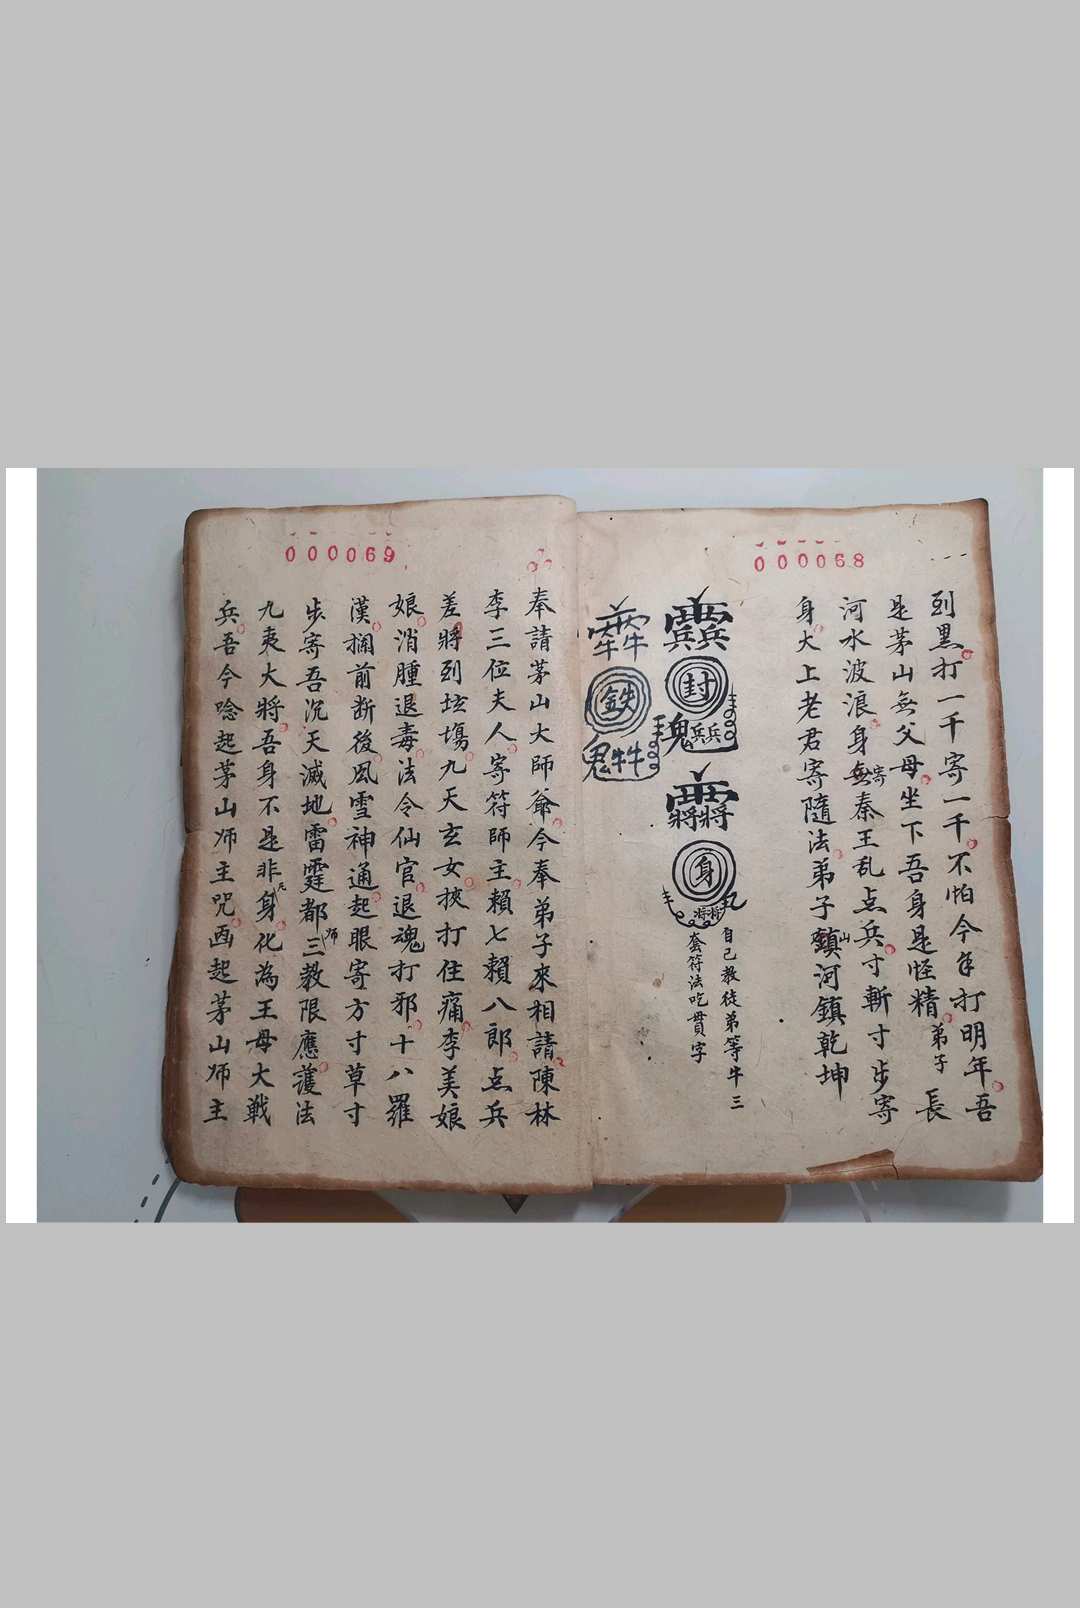 000068
到黑打一千寄一千不怕今年打明年吾
是茅山無父母坐下吾身是怪精弟子長
河水波浪身無寄秦王乱点兵寸斬寸步寄
身大上老君寄隨法弟子鎮山河鎮乾坤
封
鬼兵兵
身
将将
自己教徒弟等牛三
套符法吃貫字
鉄
鬼牛牛
000069
奉請茅山大師爺今奉弟子來相請陳林
李三位夫人寄符師主賴七賴八郎点兵
差將到坛塲九天玄女挾打住痛李美娘
娘消腫退毒法令仙官退魂打邪十八羅
漢攔前断後風雪神通起眼寄方寸草寸
步寄吾沉天滅地雷霆都師三教限應護法
九夷大將吾身不是非凡身化為王母大戦
兵吾今唸起茅山师主咒画起茅山师主